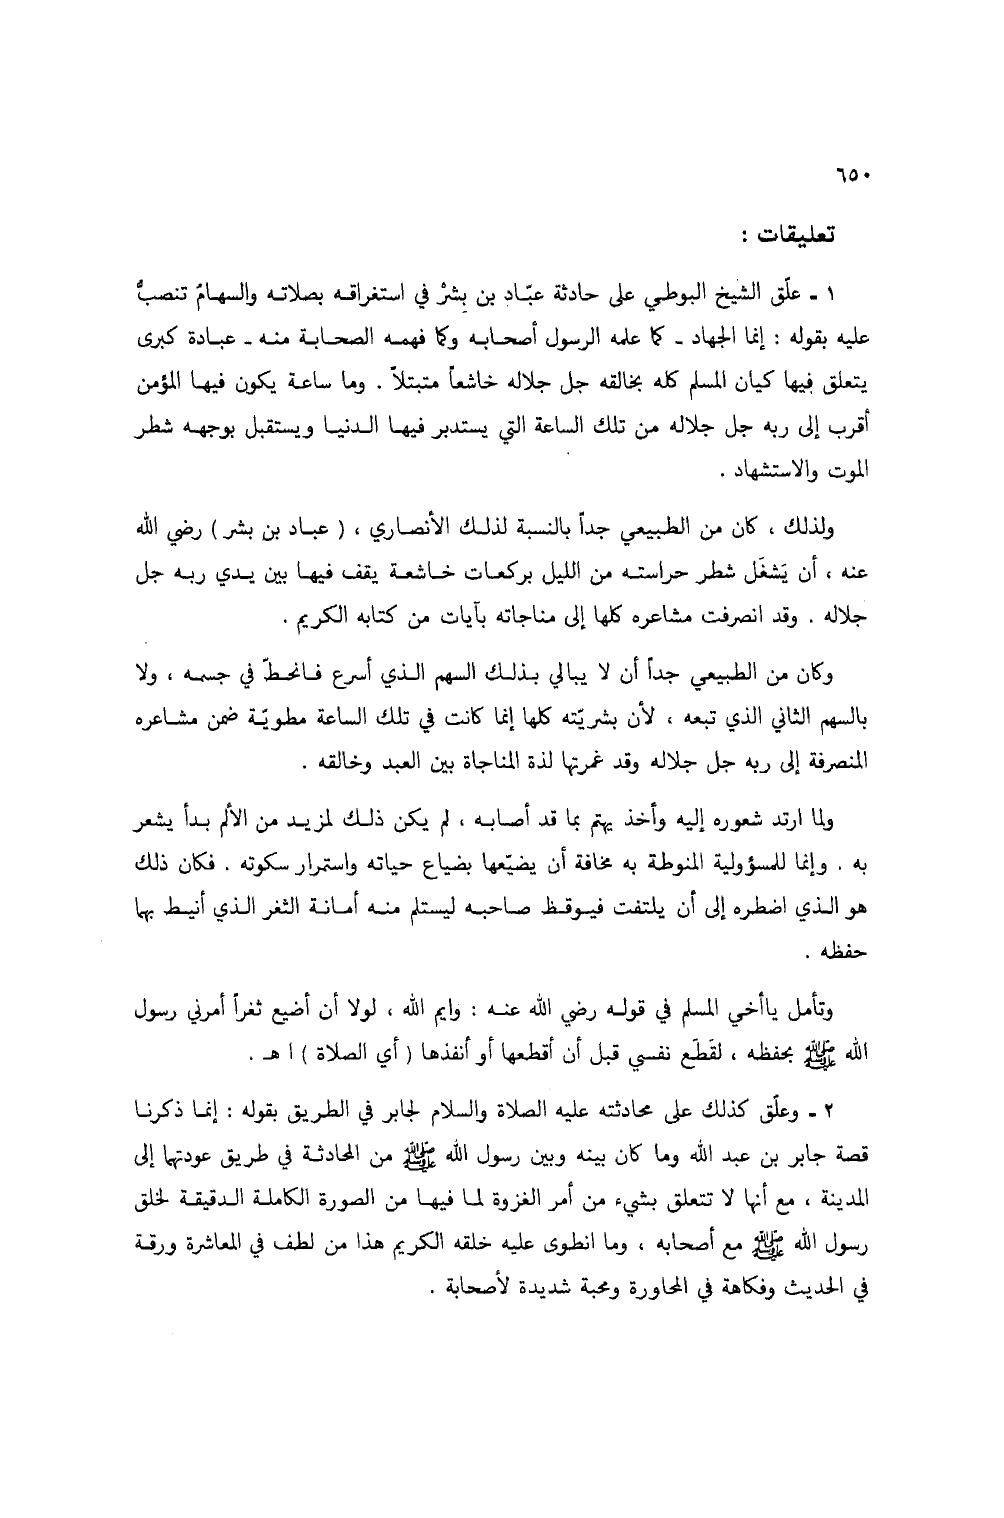 ٦٥٠
تعليقات :
١ - علّق الشيخ البوطي على حادثة عبّاد بن بِشرْ في استغراقه بصلاته والسهامُ تنصبُّ
عليه بقوله : إنما الجهاد - كما علمه الرسول أصحابه وكما فهمه الصحابة منه - عبادة كبرى
يتعلق فيها كيان المسلم كله بخالقه جل جلاله خاشعاً متبتلاً . وما ساعة يكون فيها المؤمن
أقرب إلى ربه جل جلاله من تلك الساعة التي يستدبر فيها الدنيا ويستقبل بوجهه شطر
الموت والاستشهاد .
ولذلك ، كان من الطبيعي جداً بالنسبة لذلك الأنصاري ، ( عباد بن بشر ) رضي الله
عنه ، أن يَشغَل شطر حراسته من الليل بركعات خاشعة يقف فيها بين يدي ربه جل
جلاله . وقد انصرفت مشاعره كلها إلى مناجاته بآيات من كتابه الكريم .
وكان من الطبيعي جداً أن لا يبالي بذلك السهم الذي أسرع فانحطّ في جسمه ، ولا
بالسهم الثاني الذي تبعه ، لأن بشريّته كلها إنما كانت في تلك الساعة مطويّة ضمن مشاعره
المنصرفة إلى ربه جل جلاله وقد غمرتها لذة المناجاة بين العبد وخالقه .
ولما ارتد شعوره إليه وأخذ يهتم بما قد أصابه ، لم يكن ذلك لمزيد من الألم بدأ يشعر
به . وإنما للمسؤولية المنوطة به مخافة أن يضيّعها بضياع حياته واستمرار سكوته . فكان ذلك
هو الذي اضطره إلى أن يلتفت فيوقظ صاحبه ليستلم منه أمانة الثغر الذي أنيط بها
حفظه .
وتأمل ياأخي المسلم في قوله رضي الله عنه : وايم الله ، لولا أن أضيع ثغراً أمرني رسول
الله ﷺ بحفظه ، لقَطَع نفسي قبل أن أقطعها أو أنفذها ( أي الصلاة ) ا هـ .
٢ - وعلّق كذلك على محادثته عليه الصلاة والسلام لجابر في الطريق بقوله : إنما ذكرنا
قصة جابر بن عبد الله وما كان بينه وبين رسول الله ﷺ من المحادثة في طريق عودتها إلى
المدينة ، مع أنها لا تتعلق بشيء من أمر الغزوة لما فيها من الصورة الكاملة الدقيقة لخلق
رسول الله ﷺ مع أصحابه ، وما انطوى عليه خلقه الكريم هذا من لطف في المعاشرة ورقة
في الحديث وفكاهة في المحاورة ومحبة شديدة لأصحابة .